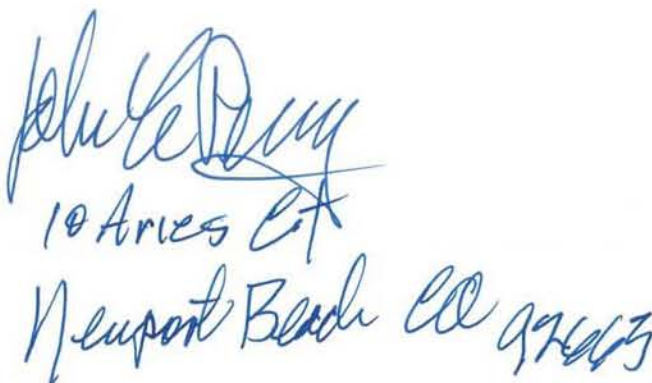 John
10 Aries Ct
Newport Beach Ca 92663